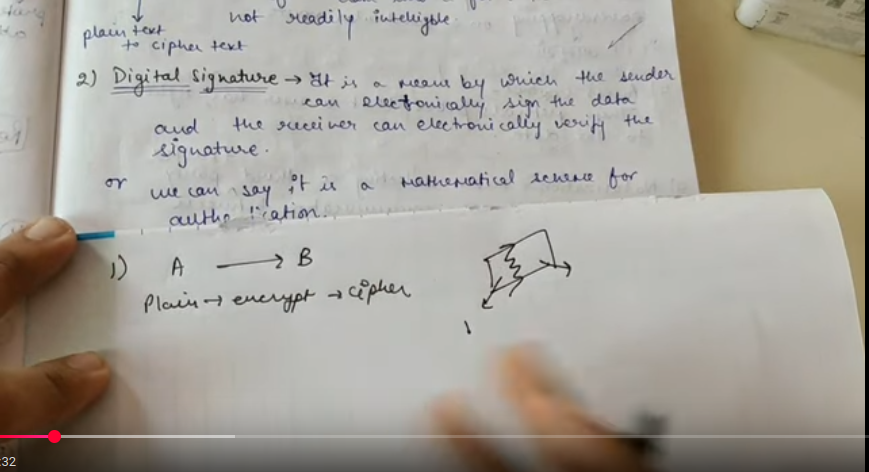 not readily intelligible.
plain text
to cipher text
2) Digital Signature → It is a means by which the sender
can electronically sign the data
and the receiver can electronically verify the
signature.
or we can say it is a mathematical scheme for
authe   ication.
1) A → B
Plain → encrypt → cipher
:32